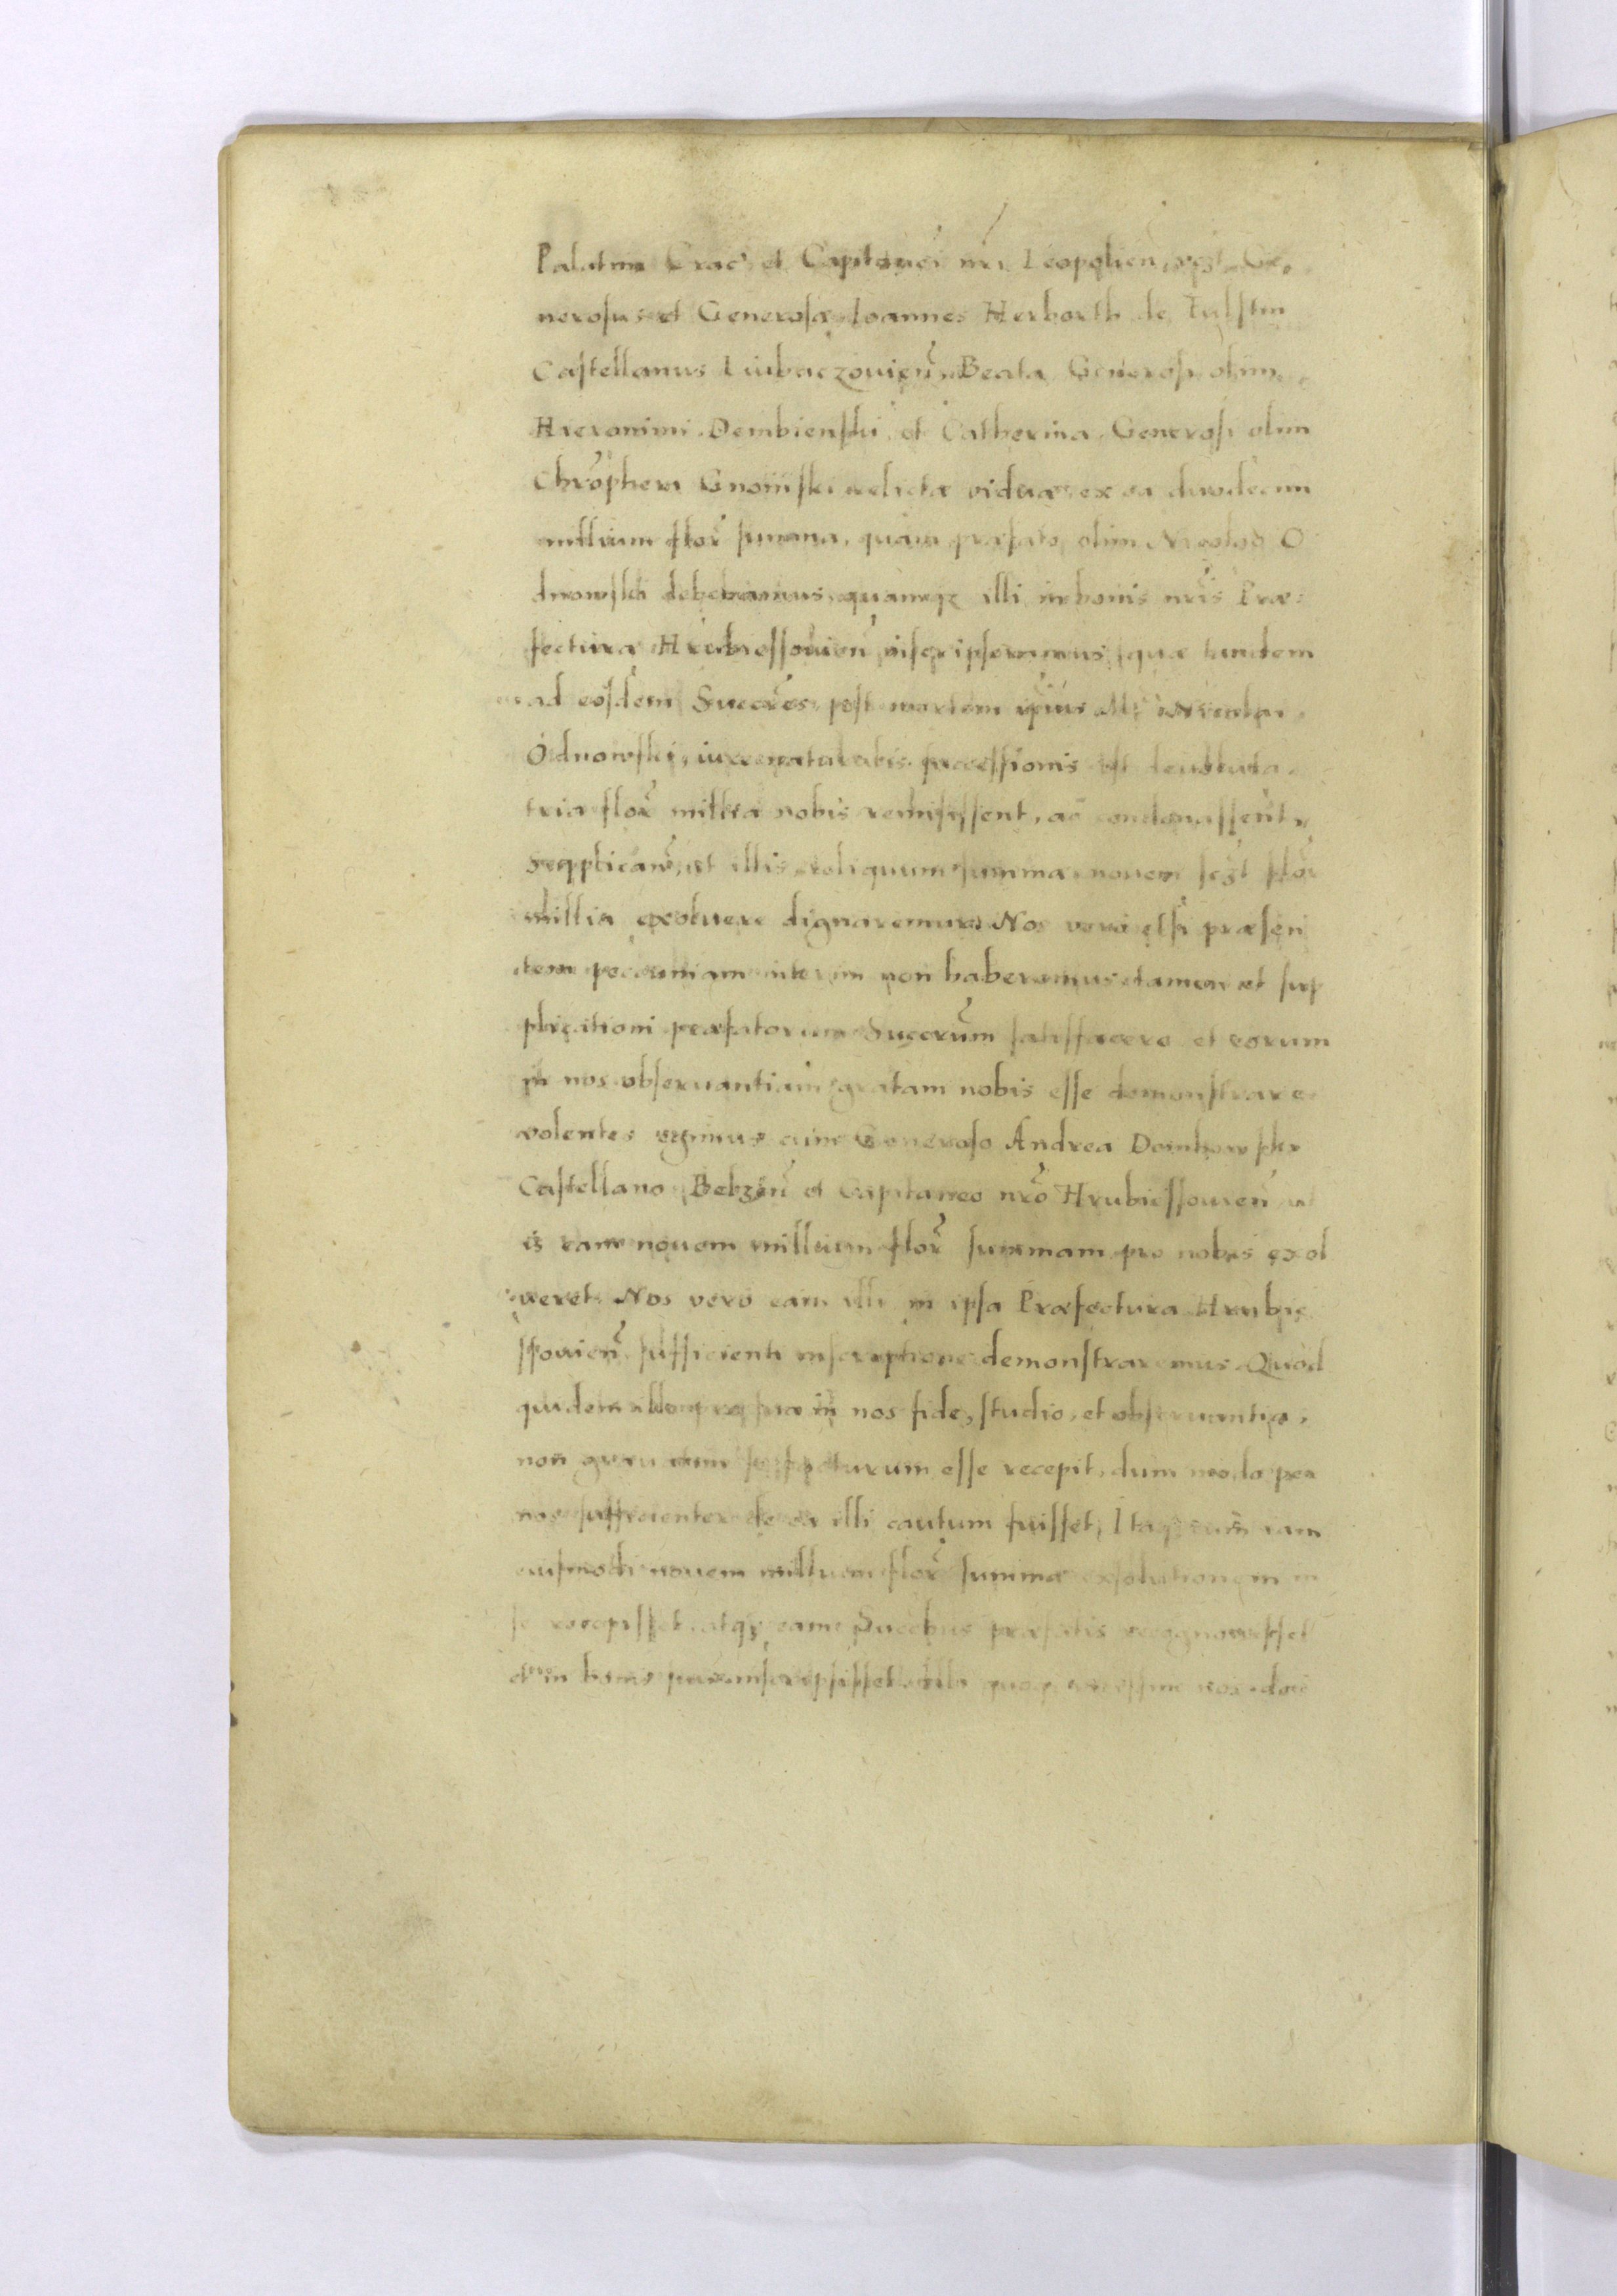 Palatini Crac̃ et Capitanei nr̃i Leopolien̄, vꝫt Ge,
neroſus et Generoſæ Ioannes Herborth de Fulſtin
Caſtellanus Liubaczouien̄, Beata Generoſi olim
Hieronimi Dembienſki, et Catherina Generoſi olim
Chrõpheri Gnoiniſki relictæ viduæ, ex ea duodecim
millium flor̃ summa, quam præfato olim Nicolao O
dnowſki debebamus, quamqꝫ illi in bonis nr̃is Præ
fecturæ Hrubieſſouien̄ inſcripſeramus, quæ tandem
ad eoſdem Succr̃es, poſt mortem ip̃ius M. Nicolai
Odnowſki, iure naturalis ſucceſſionis eſt deuoluta
tria flor̃ millia nobis remiſiſſent, ac condonaſſent,
ſupplicar̃, ut illis reliquum summæ, nouem ſcꝫt flor̃
millia exoluere dignaremur. Nos vero etſi præſen
tem pecuniam interim non haberemus, tamen et ſup
plicationi præfatorum Succr̃um ſatiſfacere et eorum
in nos obſeruantiam gratam nobis eſſe demonſtrare
volentes egimus cum Generoſo Andrea Dembowſki
Caſtellano Belzen̄ et Capitaneo nr̃o Hrubieſſouien̄ ut
is eam nouem millium flor̃ ſummam pro nobis exol
ueret. Nos vero eam illi in ipſa Præfectura Hrubie
ſſouien̄ ſufficienti inſcriptione demonſtraremus. Quod
quidem ille pro ſua in nos fide, ſtudio, et obſeruantia,
non grauatim ſe facturum eſſe recepit, dum modo per
nos ſufficienter de ea illi cautum fuiſſet, Itaqꝫ cum iam
eiuſmodi nouem millium flor̃ ſummæ exſolutionem in
ſe recepiſſet, atqꝫ eam Succr̃ibus præfatis recognouiſſet
et in bonis ſuis inſcripſiſſet